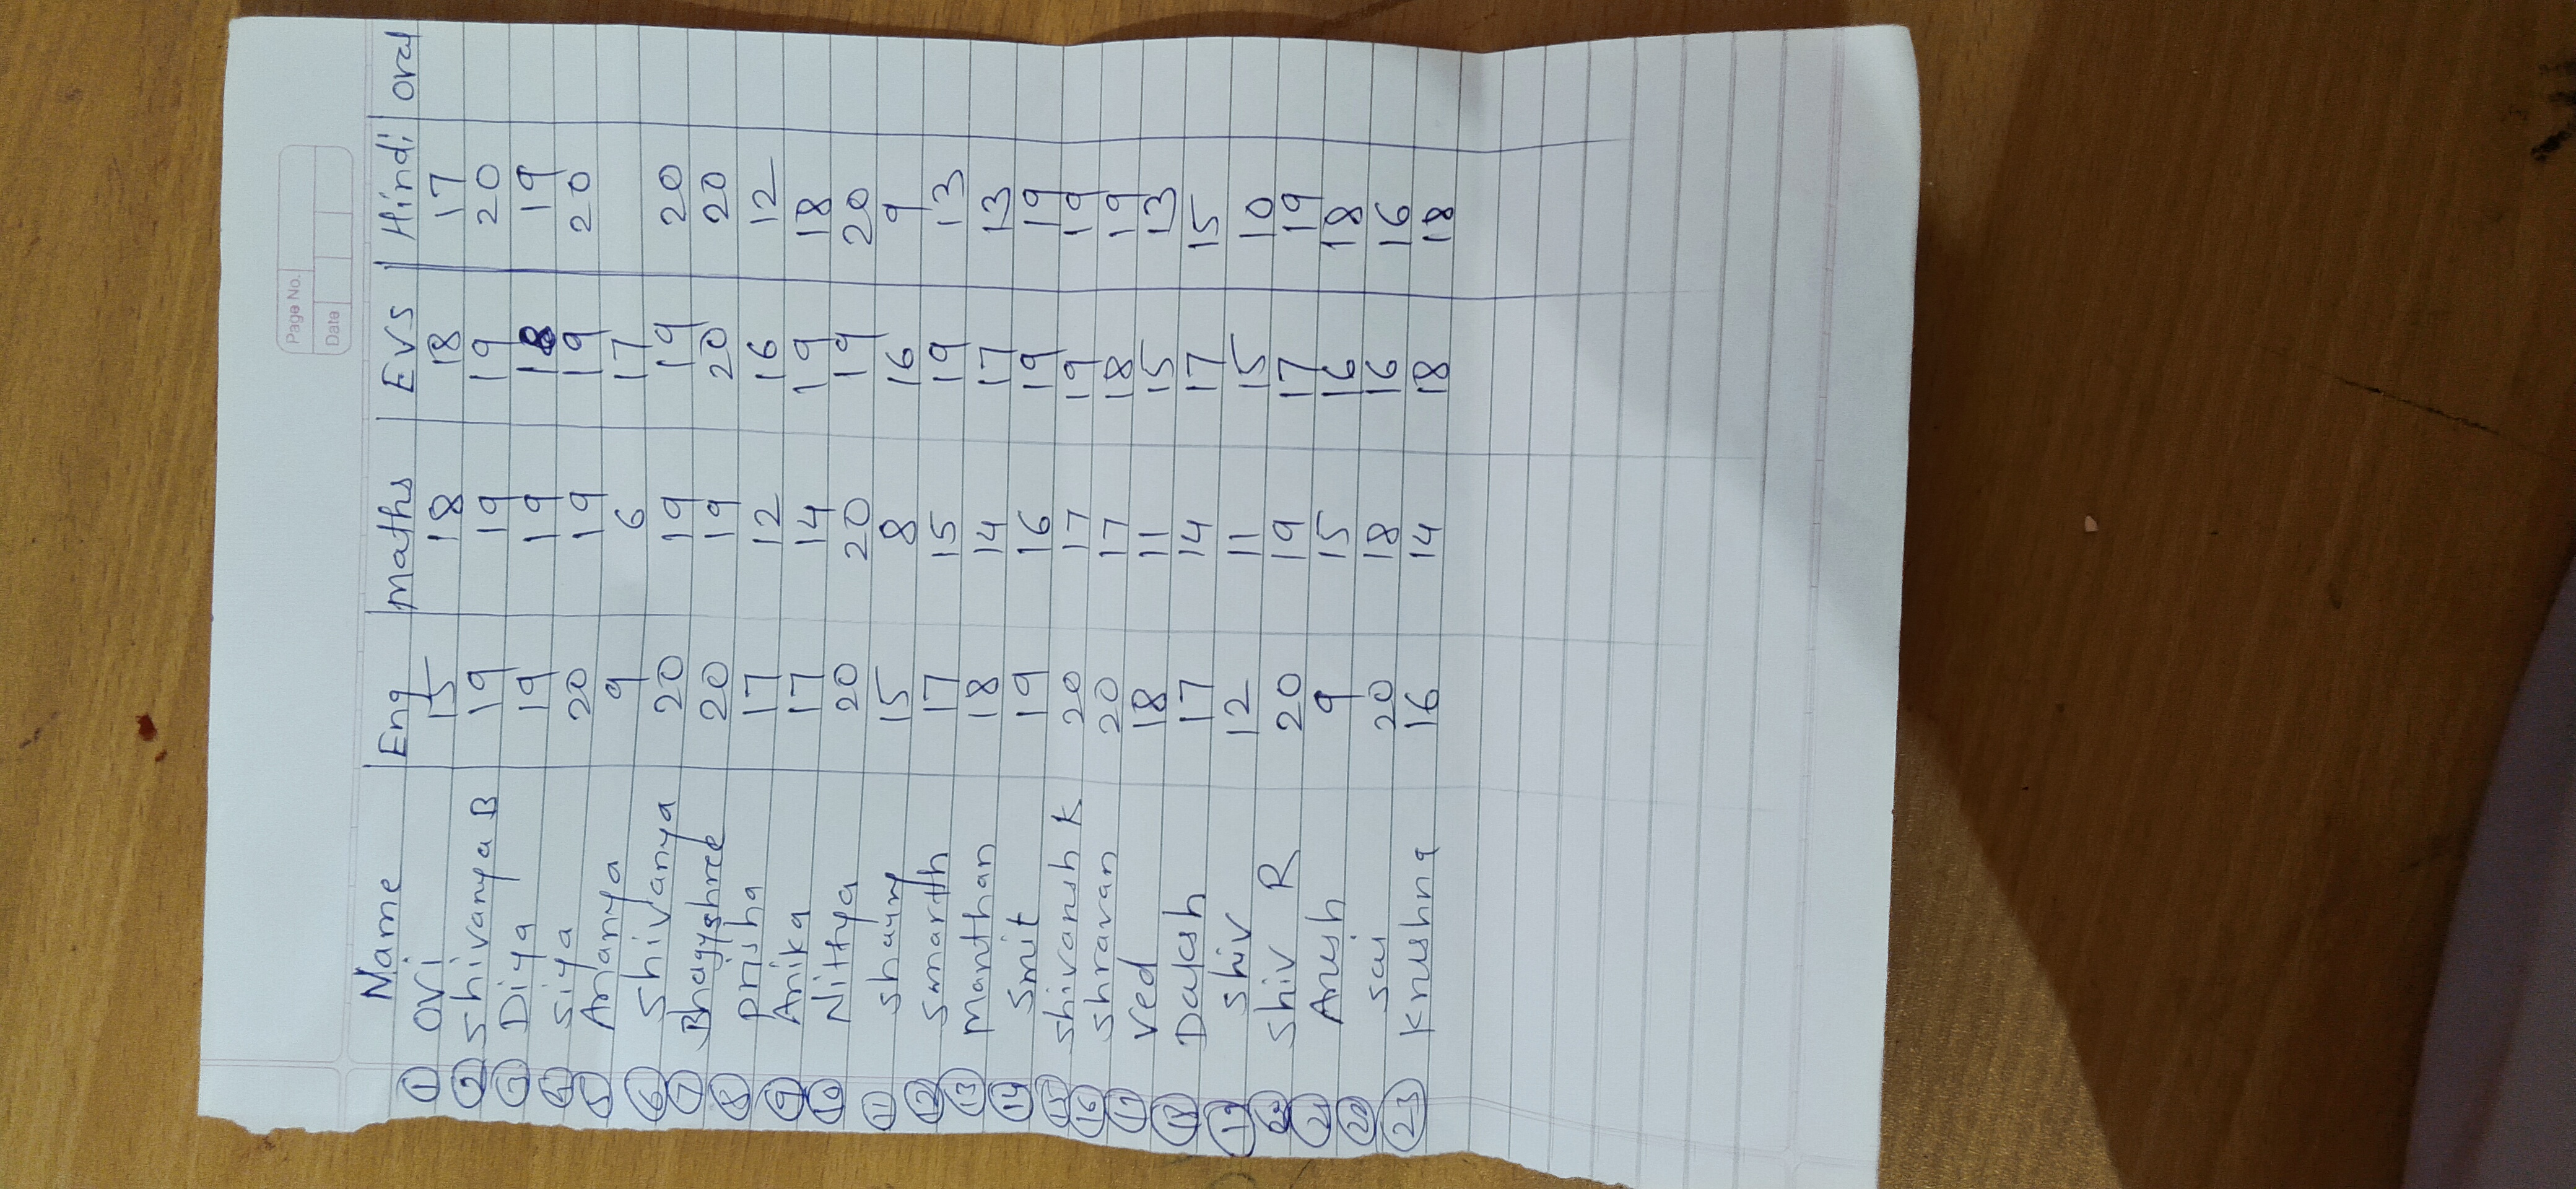 Page No.
Date
Name Eng Maths Evs Hindi Oral
1 Ovi 15 18 18 17
2 Shivanya B 19 19 19 20
3 Diya 19 19 18 19
4 Siya 20 19 19 20
5 Ananya 9 6 17
6 Shivanya 20 19 19 20
7 Bhagyshree 20 19 20 20
8 Prisha 17 12 16 12
9 Anika 17 14 19 18
10 Nittya 20 20 19 20
11 15 8 16 9
12 Smarth 17 15 19 13
13 Manthan 18 14 17 13
14 Smit 19 16 19 19
15 Shivansh K 20 17 19 19
16 Shravan 20 17 18 19
17 Ved 18 11 15 13
18 Daksh 17 14 17 15
19 Shiv 12 11 15 10
20 Shiv R 20 19 17 19
21 Ansh 9 15 16 18
22 Sai 20 18 16 16
23 Krushna 16 14 18 18